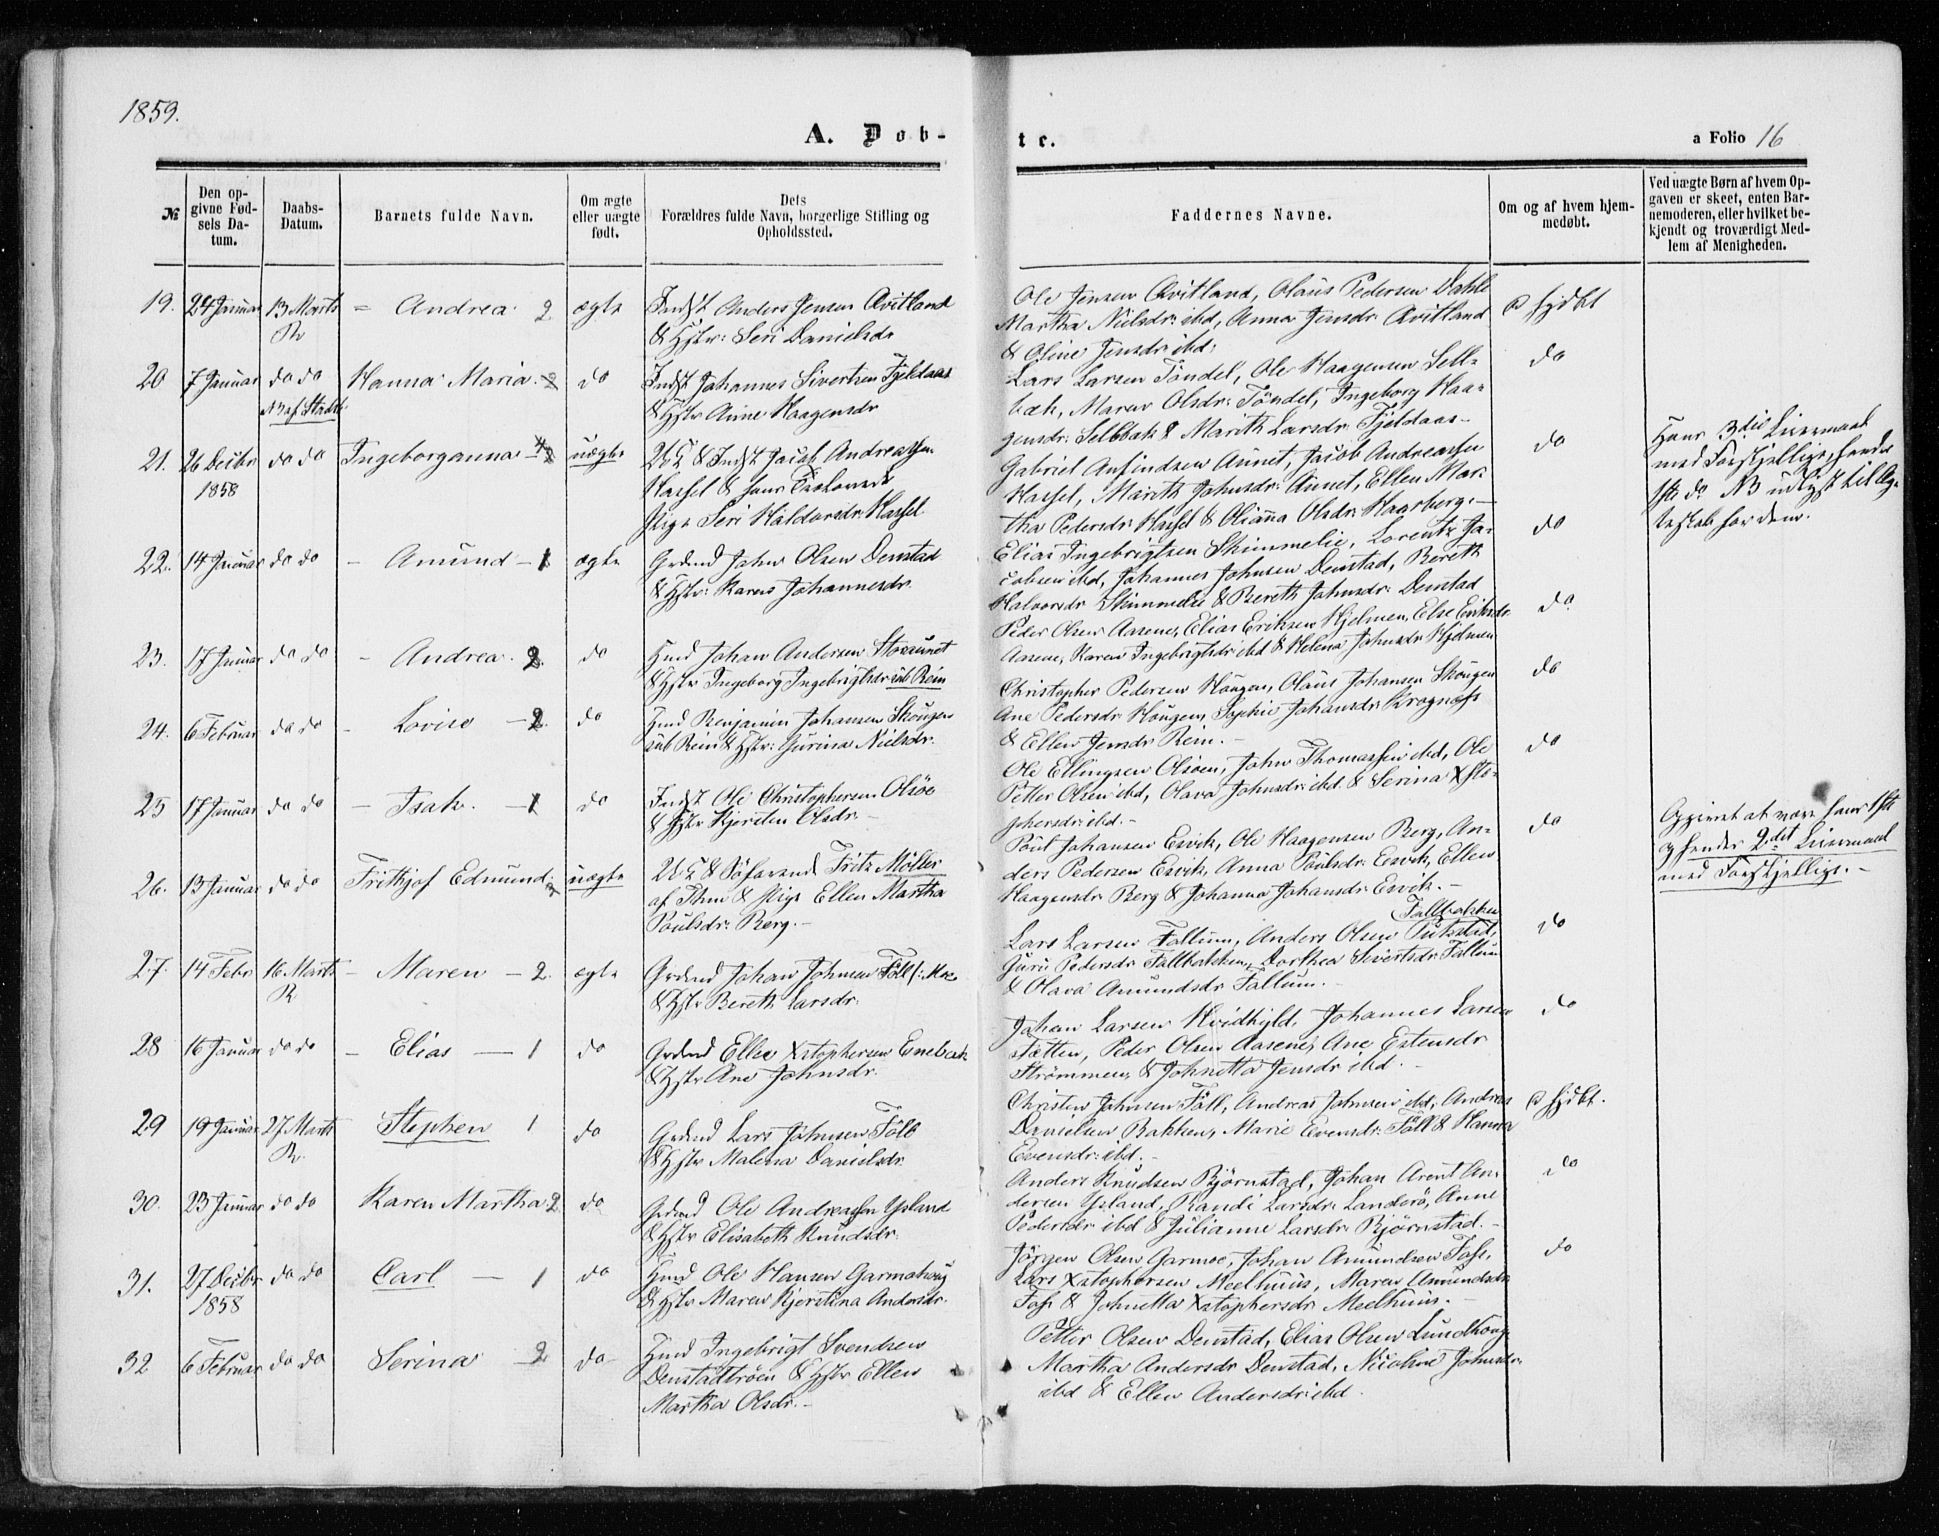 1859.
A. Døb-
te.
a Folio 16
№
Den op-
givne Fød-
sels Da-
tum.
Daabs-
Datum.
Barnets fulde Navn.
Om ægte
eller uægte
født.
Dets
Forældres fulde Navn, borgerlige Stilling og
Opholdssted.
Faddernes Navne.
Om og af hvem hjem-
medøbt.
Ved uægte Børn af hvem Op-
gaven er skeet, enten Bar-
nemoderen, eller hvilket be-
kjendt og troværdigt Med-
lem af Menigheden.
19. 24 Januar 13 Marts - Andrea. 2 ægte
R
Indst Anders Jensen Qvitland
& Hstr: Seri Danielsdr
Ole Jensen Qvitland, Olaus Pedersen Dahle
Martha Nielsdr: ibd, Anna Jensdr: Qvitland
& Oline Jensdr: ibd:
hjdbt
20 7 Januar do do Hanna Maria. 2 do
NB af Stadsb.
Indst Johannes Sivertsen Fjeldaas
& Hstr Anne Haagensdr
Lars Larsen Töndel, Ole Haagensen Selb-
bak, Maren Olsdr: Töndel, Ingeborg Haa-
gensdr: Selbbak & Marith Larsdr: Fjeldaas-
do
21. 26 Decbr do do Ingeborganna 2 uægte
1858
& Indst Jacob Andreassen
Hassel & hans Trolovede
Pige Seri Haldorsdr: Hassel.
Gabriel Anfindsen Aunet, Jacob Andreassen
Hassel, Marith Johnsdr: Aunet, Ellen Mar-
tha Pedersdr: Hassel & Olianna Olsdr: Haarberg.-
do
Hans 3die Leiermaal
med Forskjellige, hendes
1ste do NB udlyst til Æg-
teskab for dem.
22. 14 Januar do do - Amund - 1 ægte
Grdmd John Olsen Denstad
& Hstr: Karen Johannesdr.
Elias Ingebrigtsen Skimmelie, Lorentz Ja-
cobsen ibd, Johannes Johnsen Denstad, Bereth
Halvorsdr Skimmelie & Bereth Johnsdr: Denstad
do
23. 17 Januar do do - Andrea. 2. do
Hmd Johan Andersen Storaunet
& Hstr Ingeborg Ingebrigtsdr: sub Rein
Peder Olsen Aasene, Elias Eriksen Hjelmen, Else Eriksdr
Aasene, Karen Ingebrigtsdr ibd & Helena Johnsdr Hjelmen
do.
24. 6 Februar do do - Lovise - 2. do
Hmd Benjamin Johansen Skougen
sub Rein & Hstr: Gurina Nielsdr.
Christopher Pedersen Hougen, Olaus Johansen Skougen
Ane Pedersdr: Hougen, Sophie Johansdr: Krognæss
& Ellen Jensdr: Rein. -
do
25 17 Januar do do - Isak. - 1 do
Indst Ole Christophersen Olsöe
& Hstr Kjersten Olsdr. -
Ole Ellingsen Olsöen, John Thomassen ibd, Ole
Petter Olsen ibd, Olava Johnsdr: ibd. & Serina Xsto-
phersdr: ibd. -
do
26. 13 Januar do do Frithjof Edmund. uægte
& Söfarende Fritz Möller
af Thm & Pige Ellen Martha
Poulsdr: Berg. -
Poul Johansen Esvik, Ole Haagensen Berg, An-
ders Pedersen Esvik, Anna Poulsdr: Esvik, Ellen
Haagensdr: Berg & Johanna Johansdr: Esvik. -
do
Opgivet at være hans 1ste
og hendes 2det Leiermaal
med Forskjellige. -
27. 14 Febr 16 Marts - Maren - 2. ægte
R.
Grdmd Johan Johnsen Föll
& Hstr Bereth Larsdr:
Fallbakken
Lars Larsen Fallum, Anders Olsen
Guru Pedersdr Fallbakken, Dorthea Sivertsdr: Fallum
& Olava Amundsdr Fallum. -
do
28 16 Januar do do - Elias - 1 do
Grdmd Ellev Xstophersen Enebak
& Hstr Ane Johnsdr.
Johan Larsen Hvidhyld, Johannes Larsen
Peder Olsen Aasene, Ane Estensdr
Strömmen, & Johnetta Jensdr ibd. -
do
29 19 Januar 27 Marts Stephen 1 do
R.
Grdmd Lars Johnsen Föll
& Hstr Malena Danielsdr
Christen Johnsen Föll, Andreas Johnsen ibd, Andreas
Danielsen Bakken, Marie Evensdr: Föll & Hanna
Evensdr: ibd. -
hjdbt.
30. 23 Januar do do Karen Martha 2 do
Grdmd Ole Andreassen Ysland
& Hstr Elisabeth Knudsdr.
Anders Knudsen Björnstad, Johan Arent An-
dersen Ysland, Randi Larsdr: Landerö, Anne
Pedersdr ibd & Julianne Larsdr: Björnstad. -
do
31. 27 Decbr do do Carl - 1 do
1858
Hmd Ole Hansen Garmakvig
& Hstr Maren Kjerstina Andersdr.
Jörgen Olsen Garmoe, Johan Amundsen Foss,
Lars Xstophersen Meelhuus, Maren Amundsdr:
Foss & Johnetta Xstophersdr: Meelhuus. -
do
32 6 Februar do do Serina - 2 do
Hmd Ingebrigt Svendsen
Denstadtröen & Hstr Ellen
Martha Olsdr. -
Petter Olsen Denstad, Elias Olsen Lundhoug
Martha Andersdr Denstad, Nicoline Johnsdr:
ibd & Ellen Andersdr: ibd.